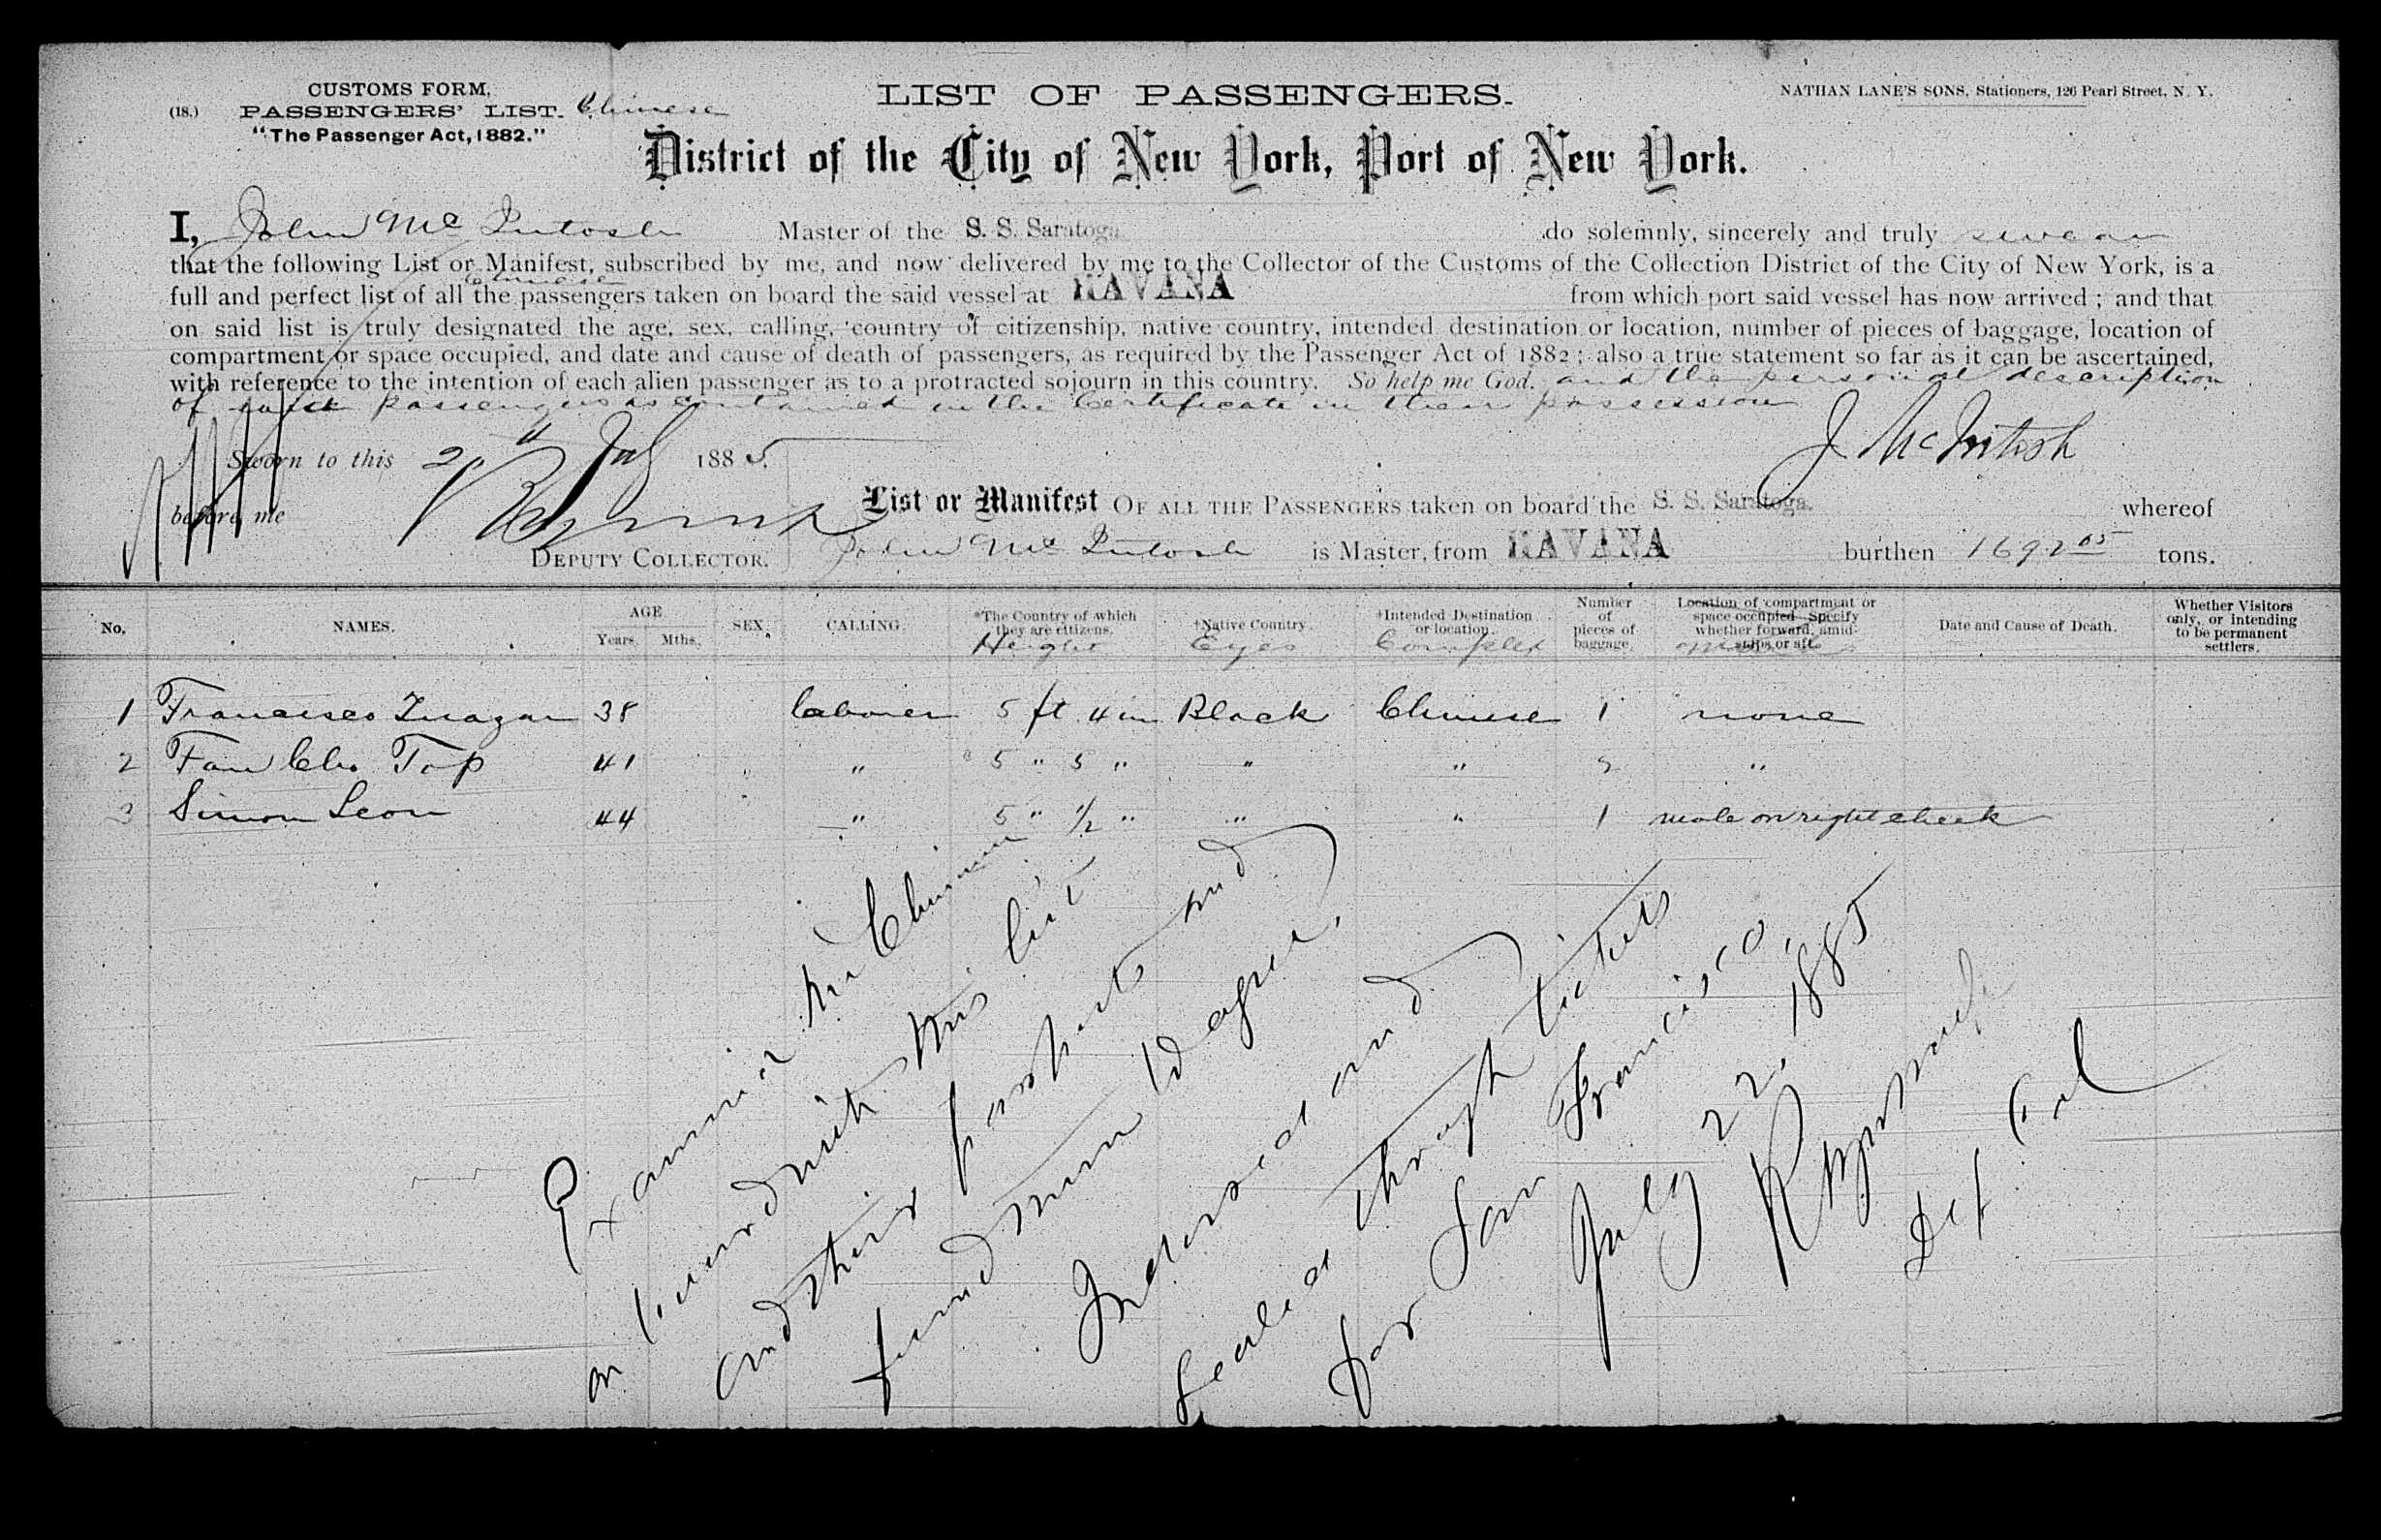 CUSTOMS FORM,
(18.) PASSENGERS' LIST. Chinese
"The Passenger Act, 1882."
LIST OF PASSENGERS.
NATHAN LANE'S SONS, Stationers, 126 Pearl Street, N. Y.
District of the City of New York, Port of New York.
I, John McIntosh Master of the S. S. Saratoga do solemnly, sincerely and truly swear
that the following List or Manifest, subscribed by me, and now delivered by me to the Collector of the Customs of the Collection District of the City of New York, is a
Chinese
full and perfect list of all the passengers taken on board the said vessel at HAVANA from which port said vessel has now arrived ; and that
on said list is truly designated the age, sex, calling, country of citizenship, native country, intended destination or location, number of pieces of baggage, location of
compartment or space occupied, and date and cause of death of passengers, as required by the Passenger Act of 1882 ; also a true statement so far as it can be ascertained,
with reference to the intention of each alien passenger as to a protracted sojourn in this country. So help me God. and the personal description
of passengers as contained in the Certificate in their possession
J McIntosh
Sworn to this 2 July 1885.
before me
DEPUTY COLLECTOR.
List or Manifest OF ALL THE PASSENGERS taken on board the S. S. Saratoga. whereof
John McIntosh is Master, from HAVANA burthen 1692 65 tons.
No. NAMES. AGE Years. Mths. SEX. CALLING. *The Country of which they are citizens. †Native Country. †Intended Destination or location. Number of pieces of baggage. Location of compartment or space occupied. Specify whether forward, amidships or aft. Date and Cause of Death. Whether Visitors only, or intending to be permanent settlers.
Height Eyes Complex
1 Francisco 38 laborer 5 ft 4 in Black Chinese 1 none
2 Top 41 " 5 " 5 " " " 2 "
3 Simon Leon 44 " 5 " 1/2 " " " 1 mole on right cheek
Examined the Chinamen
on board with this list
and their passports and
found them to agree,
Indorsed and
sealed through tickets
for San Francisco,
July 22, 1885
Dep Col